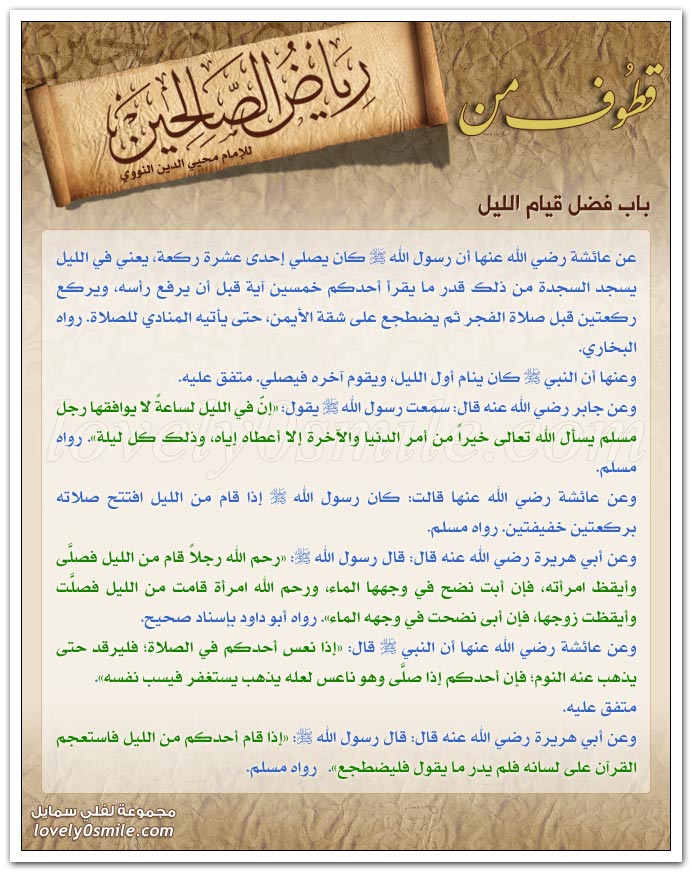 قطوف من
رِيَاضُ الصَّالِحِينَ
للإمام محيي الدين النووي
باب فضل قيام الليل
عن عائشة رضي الله عنها أن رسول الله ﷺ كان يصلي إحدى عشرة ركعة، يعني في الليل
يسجد السجدة من ذلك قدر ما يقرأ أحدكم خمسين آية قبل أن يرفع رأسه، ويركع
ركعتين قبل صلاة الفجر ثم يضطجع على شقة الأيمن، حتى يأتيه المنادي للصلاة. رواه
البخاري.
وعنها أن النبي ﷺ كان ينام أول الليل، ويقوم آخره فيصلي. متفق عليه.
وعن جابر رضي الله عنه قال: سمعت رسول الله ﷺ يقول: «إنّ في الليل لساعةً لا يوافقها رجل
مسلم يسأل الله تعالى خيراً من أمر الدنيا والآخرة إلا أعطاه إياه، وذلك كل ليلة». رواه
مسلم.
وعن عائشة رضي الله عنها قالت: كان رسول الله ﷺ إذا قام من الليل افتتح صلاته
بركعتين خفيفتين. رواه مسلم.
وعن أبي هريرة رضي الله عنه قال: قال رسول الله ﷺ: «رحم الله رجلاً قام من الليل فصلَّى
وأيقظ امرأته، فإن أبت نضح في وجهها الماء، ورحم الله امرأة قامت من الليل فصلَّت
وأيقظت زوجها، فإن أبى نضحت في وجهه الماء». رواه أبو داود بإسناد صحيح.
وعن عائشة رضي الله عنها أن النبي ﷺ قال: «إذا نعس أحدكم في الصلاة؛ فليرقد حتى
يذهب عنه النوم؛ فإن أحدكم إذا صلَّى وهو ناعس لعله يذهب يستغفر فيسب نفسه».
متفق عليه.
وعن أبي هريرة رضي الله عنه قال: قال رسول الله ﷺ: «إذا قام أحدكم من الليل فاستعجم
القرآن على لسانه فلم يدر ما يقول فليضطجع». رواه مسلم.
lovely0smile.com
مجموعة لفلي سمايل
lovely0smile.com